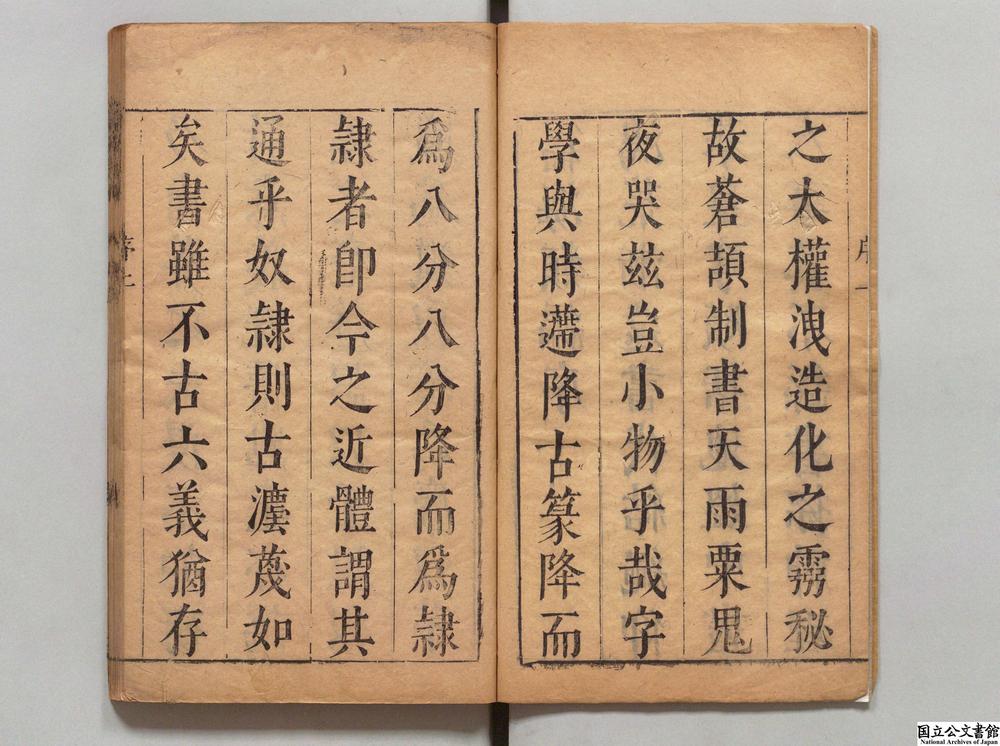 之大權洩造化之霛秘
故蒼頡制書天雨粟鬼
夜哭玆豈小物乎哉字
學與時遷降古篆降而
爲八分八分降而爲隷
隷者卽今之近體謂其
通乎奴隷則古灋蔑如
矣書雖不古六義猶存
国立公文書館
National Archives of Japan